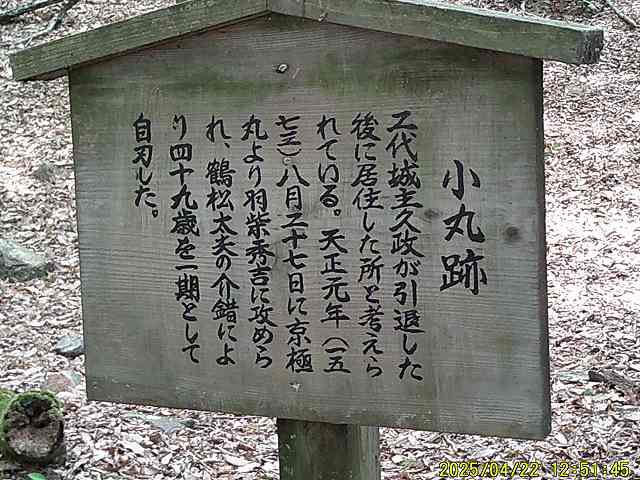 小丸跡
二代城主久政が引退した
後に居住した所と考えら
れている。天正元年（一五
七三）八月二十七日に京極
丸より羽柴秀吉に攻めら
れ、鶴松太夫の介錯によ
り四十九歳を一期として
自刃した。
2025/04/22 12:51:45